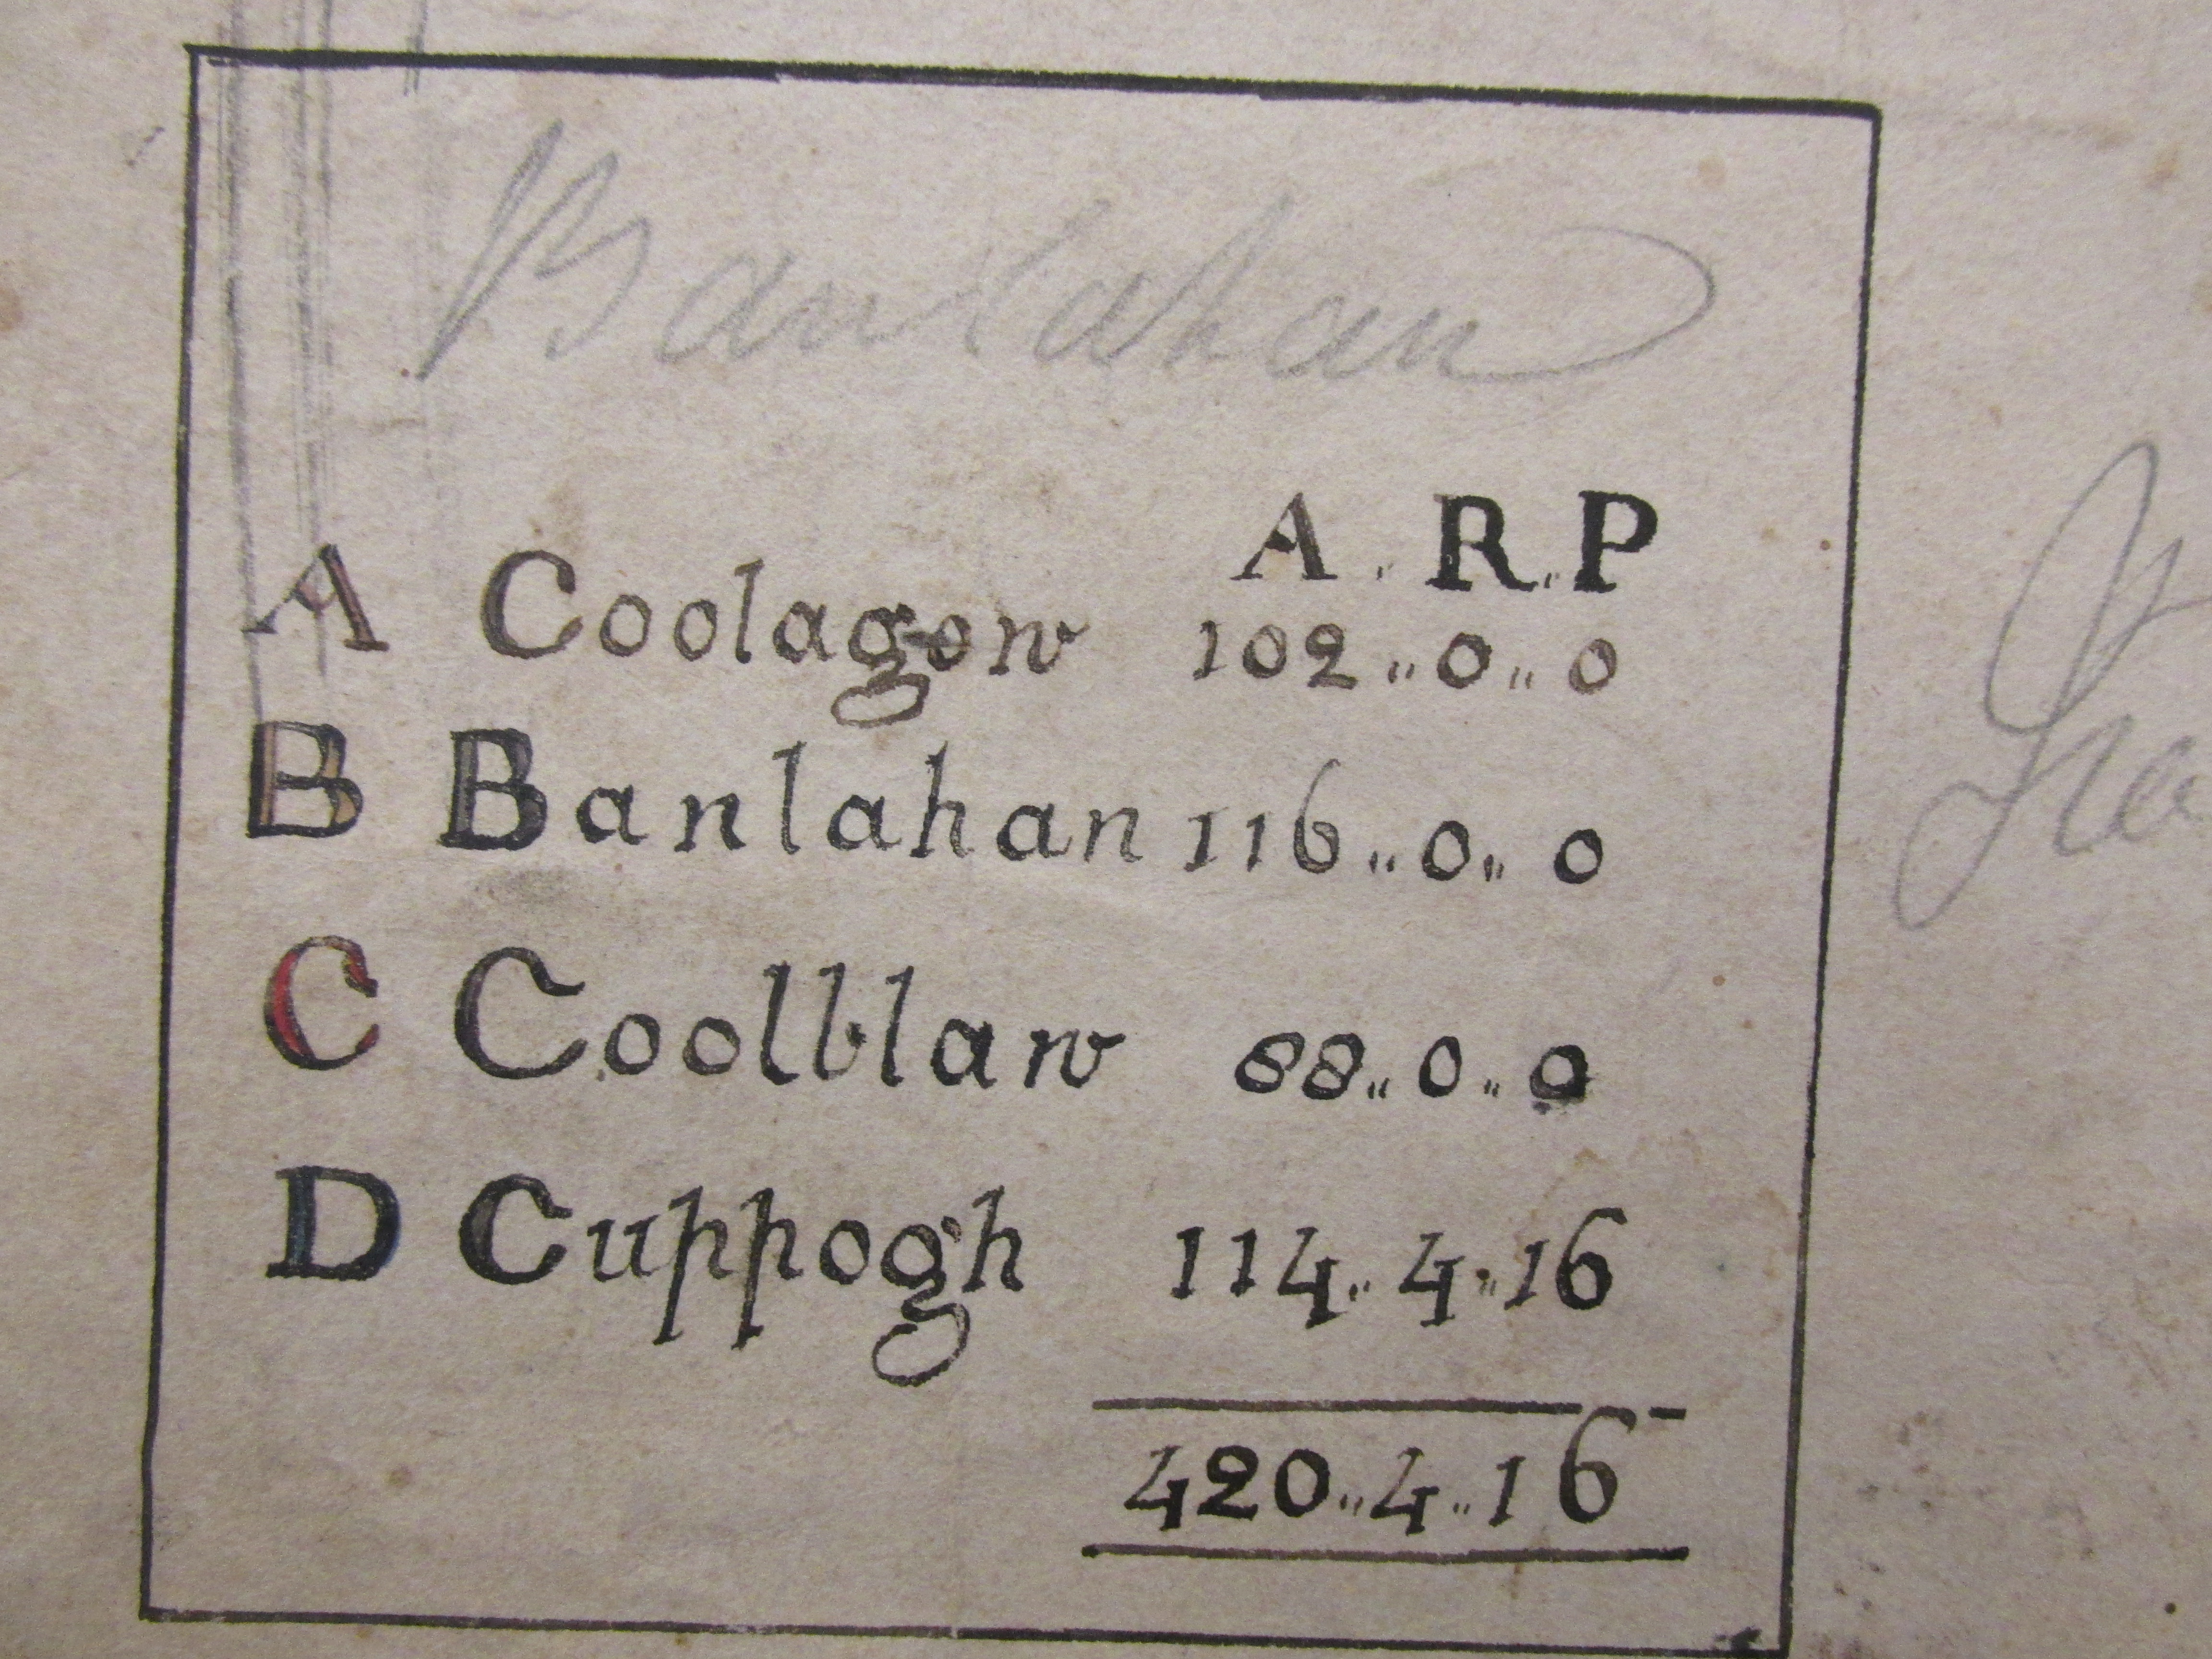 Banlahan
A.R.P
A Coolagow 102..0..0
B Banlahan 116..0..0
C Coolblaw 88..0..0
D Cuppogh 114..4..16
420..4..16